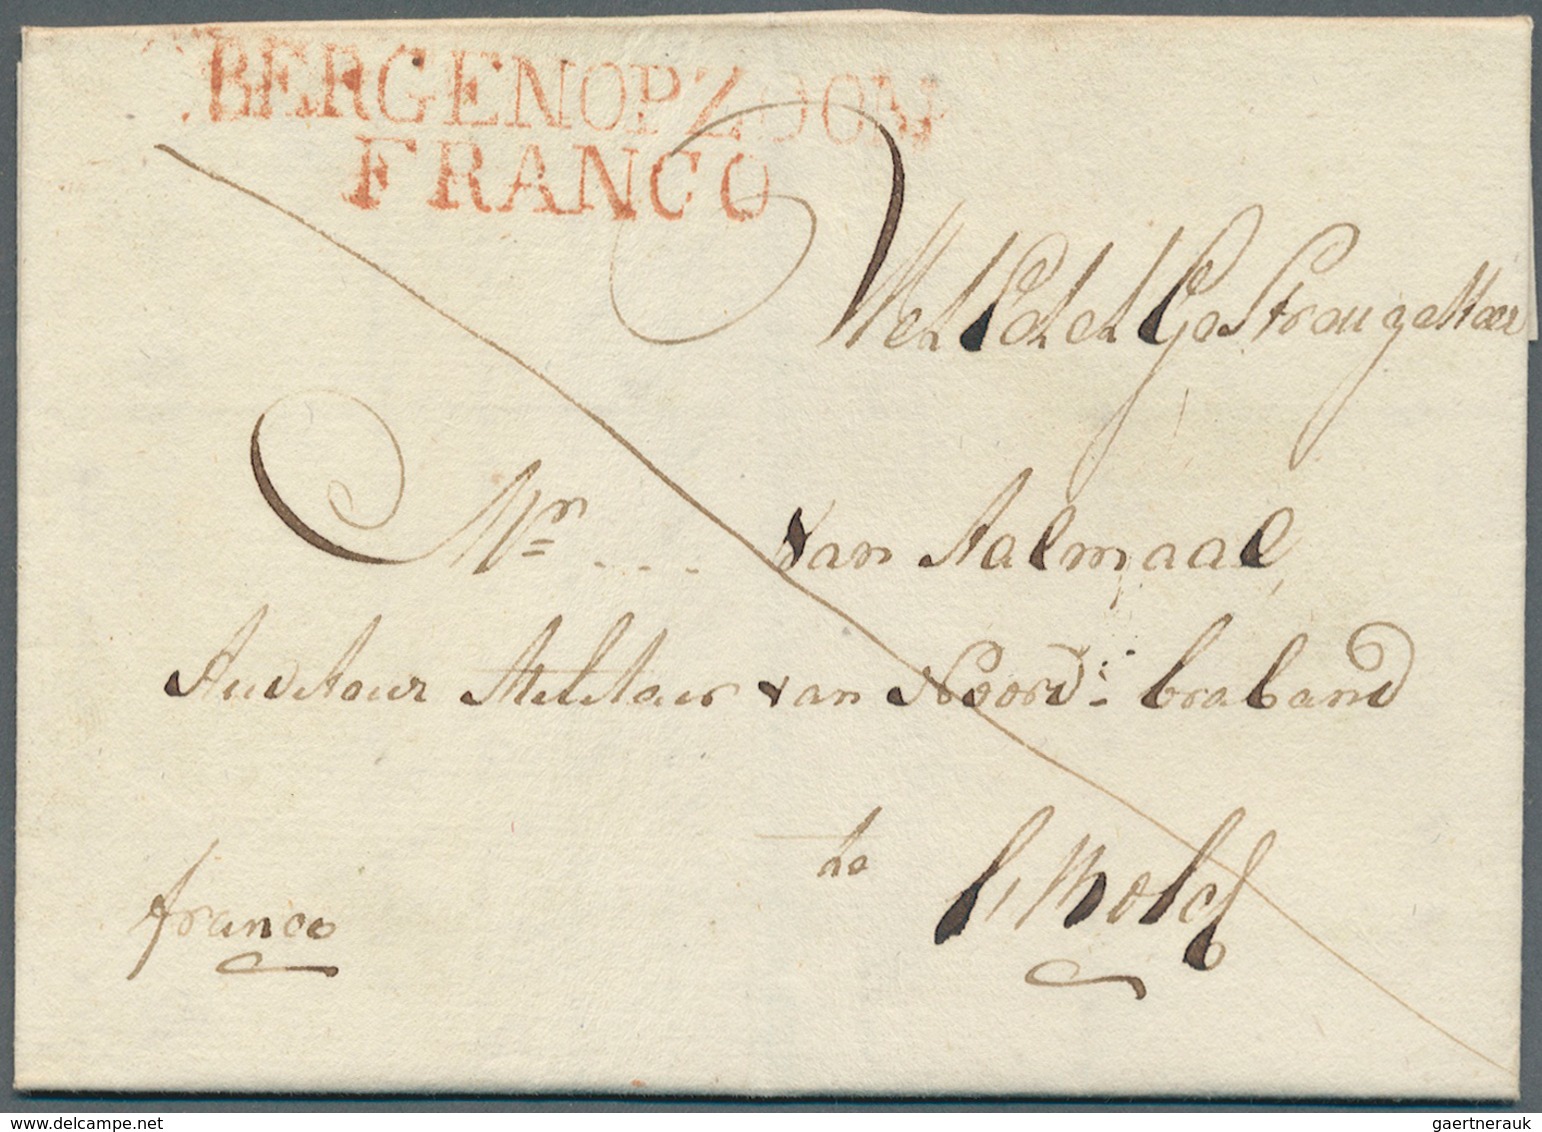 BERGENOPZOOM
FRANCO
Wel Edel GeStrenge Heer
Mr van Aalmaal
Auditeur Militair van Noord: braband
te
franco
gaertnerauk